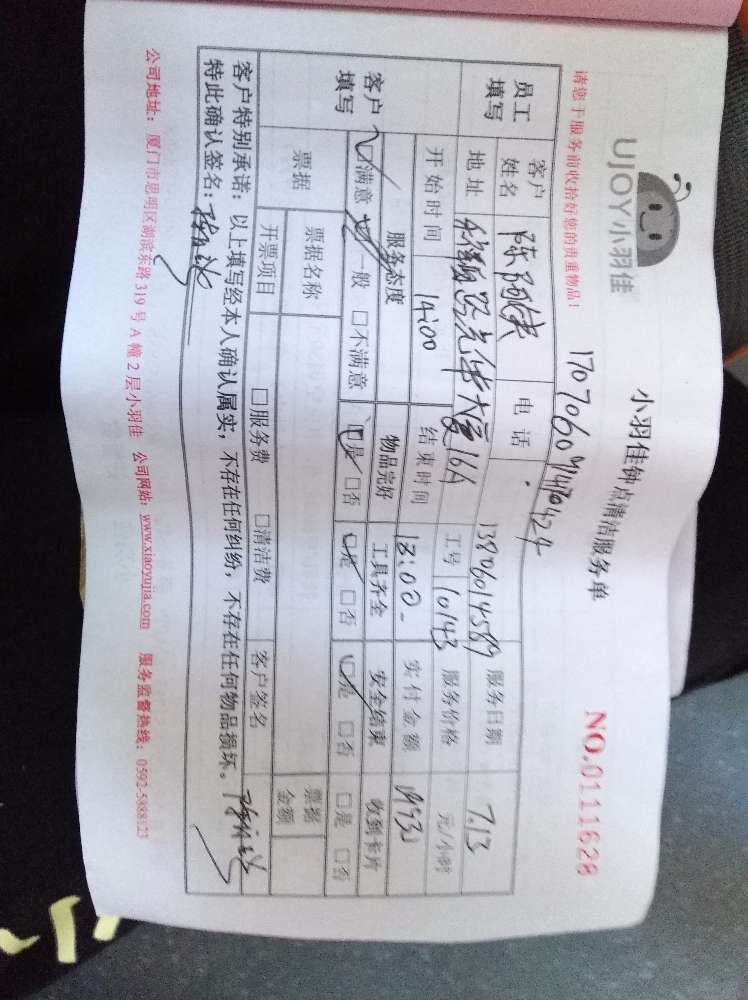 UJOY小羽佳
小羽佳钟点清洁服务单
NO.0111628
请您于服务前收拾好您的贵重物品！
员工填写 客户姓名 电话 13806014589 服务日期 7.13
地址 光华大厦16A 工号 10143 服务价格 元/小时
开始时间 14:00 结束时间 18:00 实付金额
客户填写 服务态度 物品完好 工具齐全 安全结束 收到卡片
□满意 □一般 □不满意 □是 □否 □是 □否 □是 □否 □是 □否
票据 票据名称 票据金额
开票项目 □服务费 □清洁费 客户签名
客户特别承诺：以上填写经本人确认属实，不存在任何纠纷，不存在任何物品损坏。
特此确认签名：
公司地址：厦门市思明区湖滨东路319号A幢2层小羽佳 公司网站：www.xiaoyujia.com 服务监督热线：0592-5888123